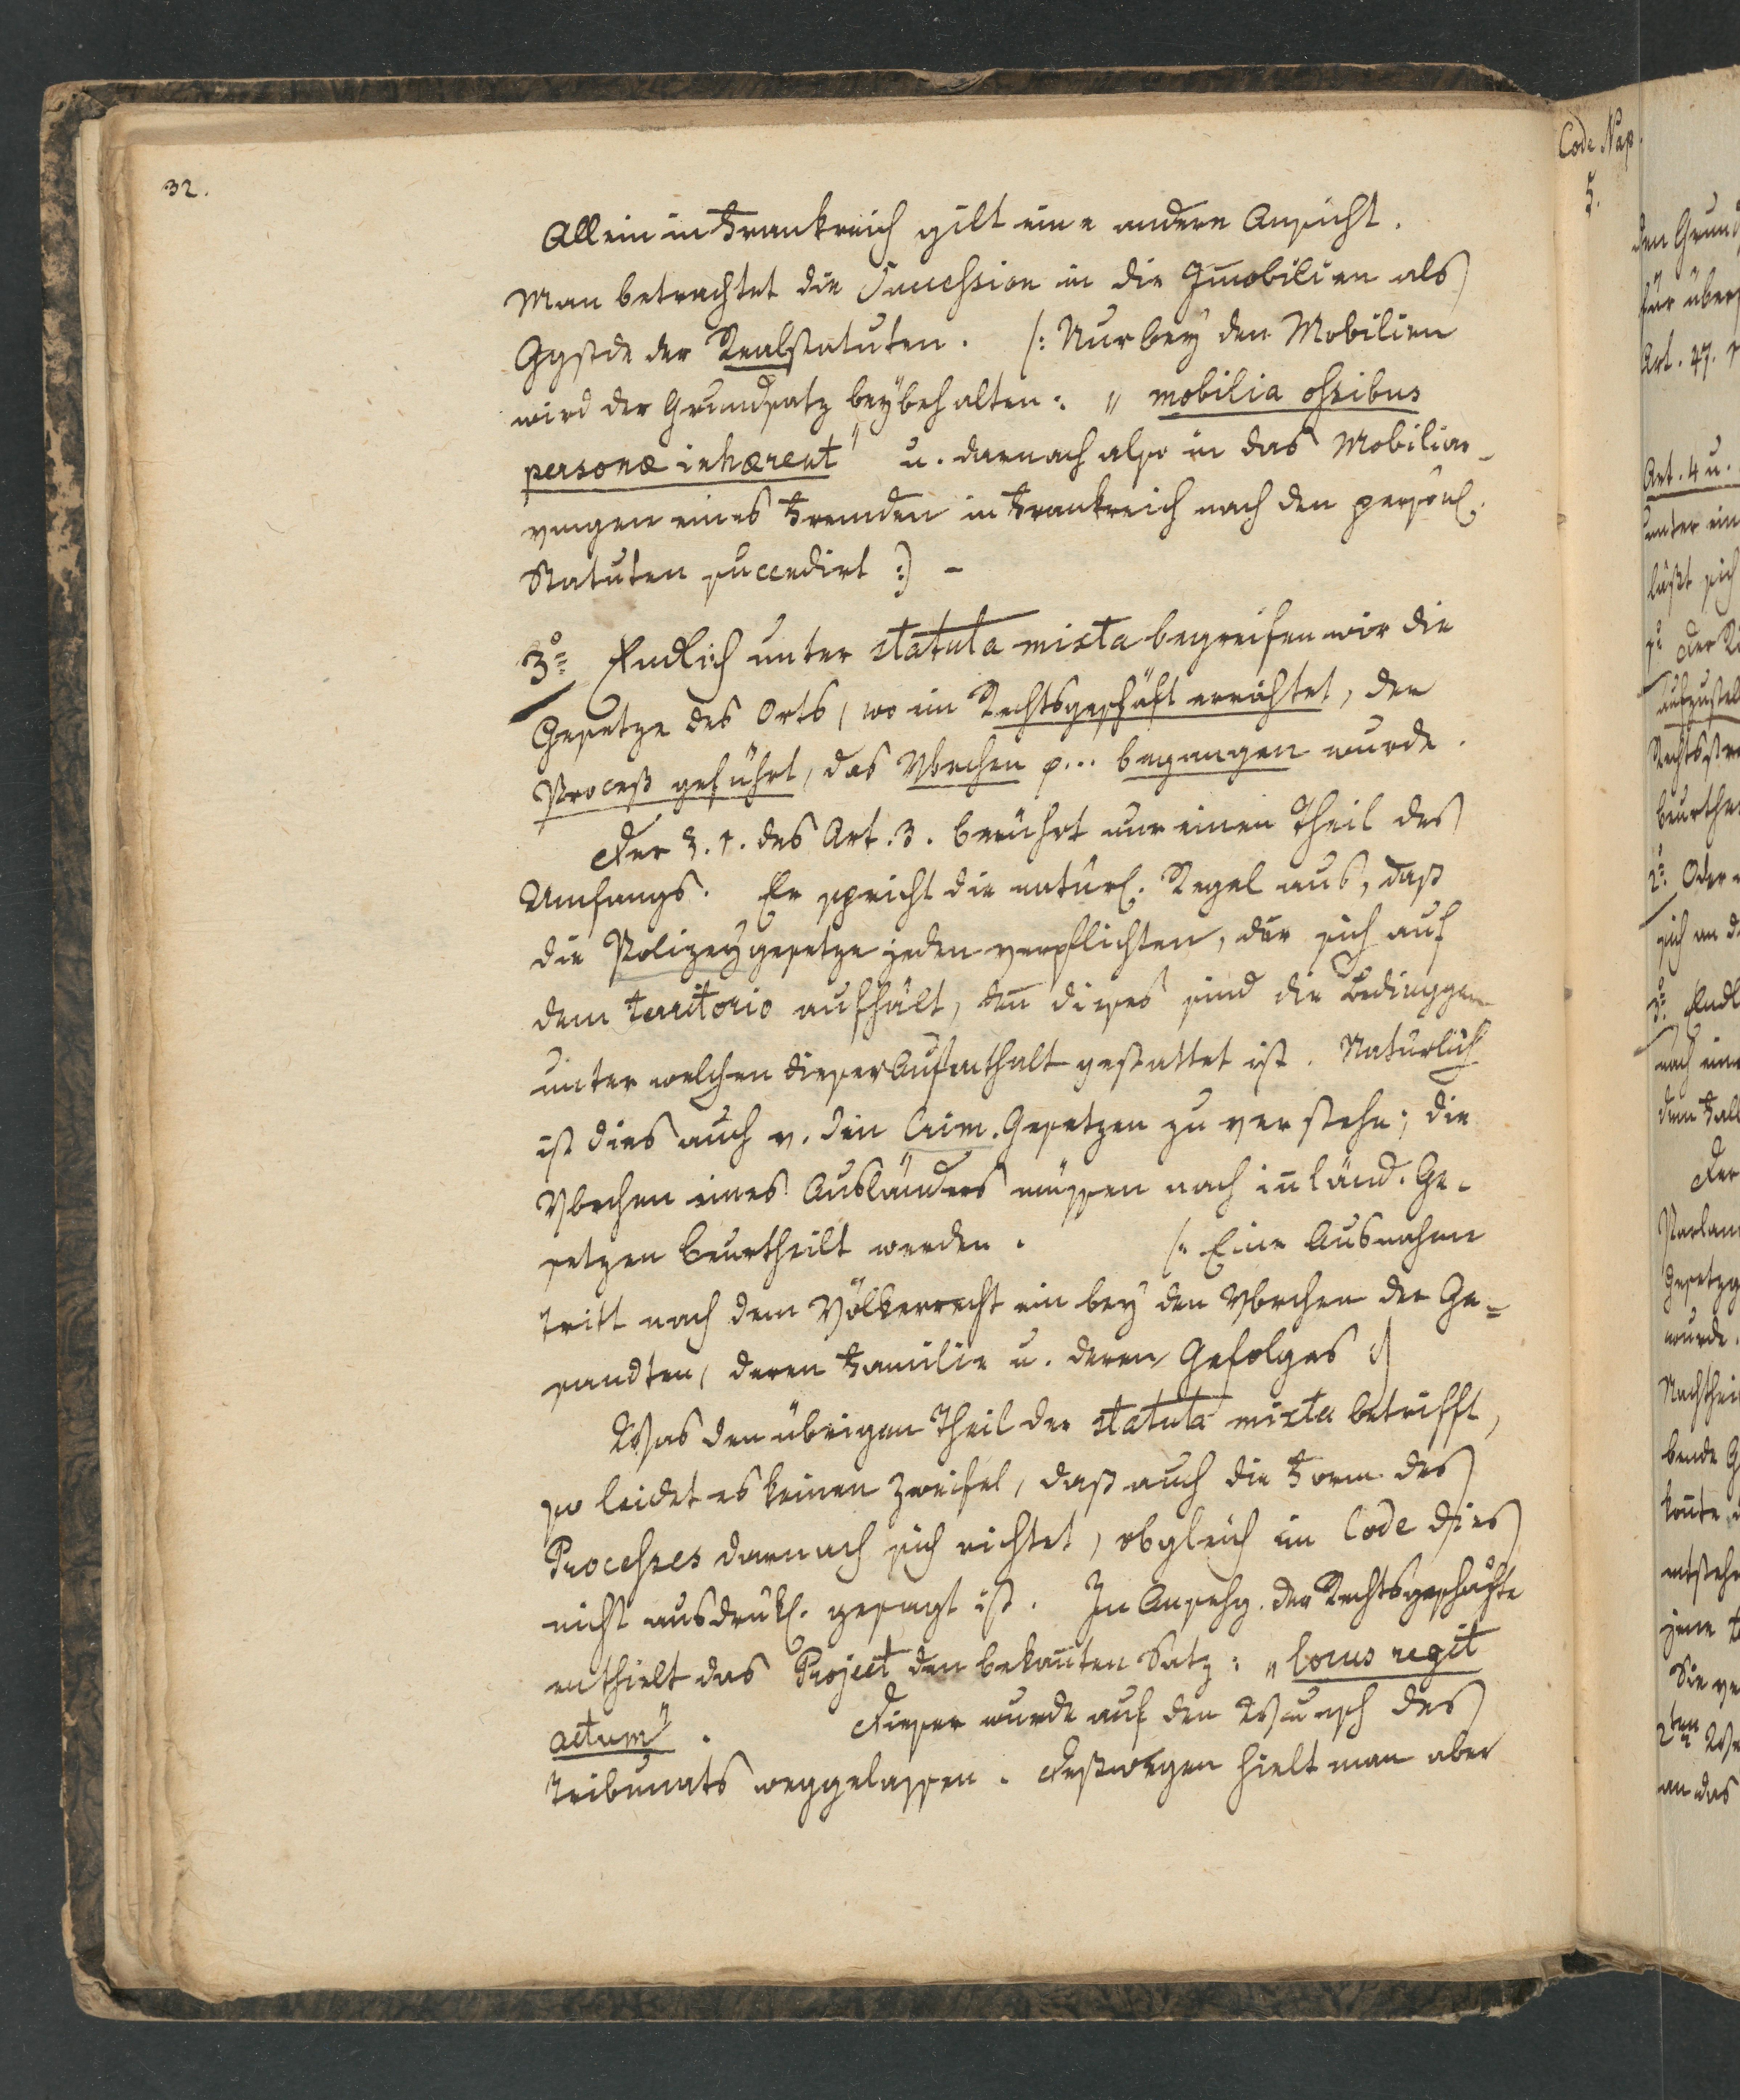 32.
Allein in Frankreich gilt eine andere Ansicht.
Man betrachtet die Succession in die Im̄obilien als
Ggstde der Realstatuten. /: Nur bey den Mobilien
wird der Grundsatz beybehalten: „mobilia ossibus
personæ inhærent" u. darnach also in das Mobiliar-
vmgen eines Fremden in Frankreich nach den persönl.
Statuten succedirt :/ –
3º= Endlich unter statuta mixta begreifen wir die
Gesetze des Orts, wo ein Rechtsgeschäft errichtet, der
Proceß geführt, das Vbrchen p... begangen wurde.
Der §. 1. des Art. 3. berührt nur einen Theil des
Umfangs. Er spricht die natürl. Regel aus, daß
die Polizeygesetze jeden verpflichten, der sich auf
dem territorio aufhält, den̄ dieses sind die Bedinggen
unter welchen dieser Aufenthalt gestattet ist. Natürlich
ist dies auch v. den Crim. Gesetzen zu verstehn; die
Vbrchen eines Ausländers müssen nach in̄länd. Ge-
setzen beurtheilt werden. /: Eine Ausnahme
tritt nach dem Völkerrecht ein bey den Vbrchen der Ge=
sandten, deren Familie u. deren Gefolges :/
Was den übrigen Theil der statuta mixta betrifft,
so leidet es keinen Zweifel, daß auch die Form des
Processes darnach sich richtet, obgleich im Code dies
nicht ausdrükl. gesagt ist. In Ansehg. der Rechtsgeschäfte
enthielt das Project den bekan̄ten Satz: „locus regit
actum". Dieser wurde auf den Wunsch des
Tribunats weggelassen. Deßwegen hielt man aber
Code Nap.
5.
den Grund
für über
Art. 47.
Art. 4 u.
unter ein
läßt sich
1º Der Ri
aufzustel
Rechtsstre
beurthe
2º Oder
sich an d
3º Endl
nach ein
dem Fall
Der
Parlam
Gesetzg
wurde.
Nachthei
bende G
kon̄te
entstehn
jene
Sie ve
2ten We
an das